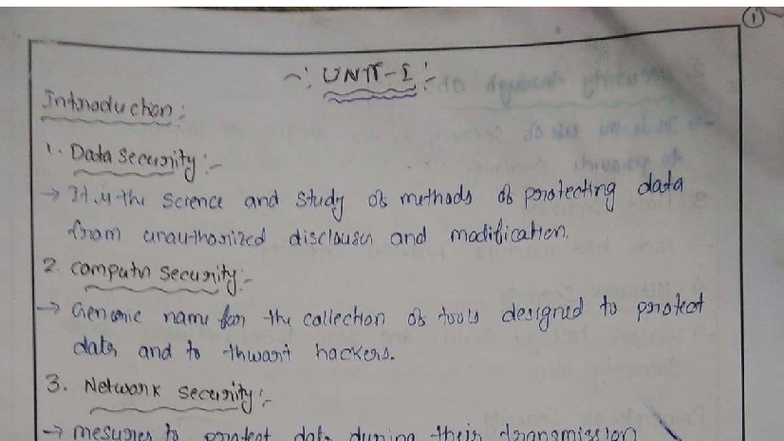 1
~: UNIT-I :-
Introduction:
1. Data security:-
→ It is the science and study of methods of protecting data
from unauthorized disclouser and modification.
2. computer security:-
→ Generic name for the collection of tools designed to protect
data and to thwart hackers.
3. Network security:-
→ mesures to protect data during their transmission